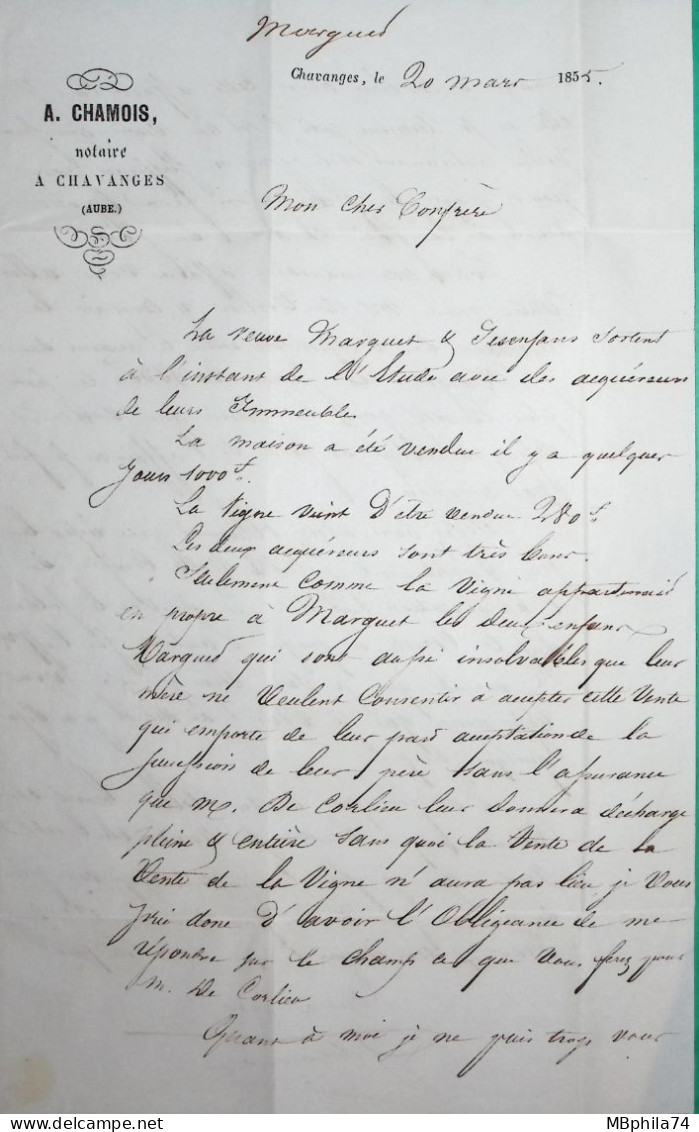 Marqued
Chavanges, le 20 mars 1855.
A. CHAMOIS,
notaire
A CHAVANGES
(AUBE.)
Mon cher Confrère
La veuve Marquet & ses enfans sortent
à l'instant de l'Etude avec des acquéreurs
de leurs Immeubles.
La maison a été vendue il y a quelques
jours 1000f.
La Vigne vient d'être vendue 280f.
Les deux acquéreurs sont très bons.
Seulement comme la Vigne appartenait
en propre à Marquet les deux enfans
Marqued qui sont aussi insolvables que leur
mère ne veulent consentir à accepter cette vente
qui emporte de leur part acceptation de la
succession de leur père sans l'assurance
que M. De Corlieu leur donnera décharge
pleine & entière sans quoi la vente de la
Vente de la Vigne n'aura pas lieu je vous
prie donc d'avoir l'Obligeance de me
répondre sur le champ ce que vous ferez pour
M. De Corlieu
Quant à moi je ne puis trop vous
MBphila74